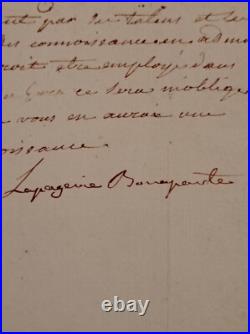 par ses talens et
des connoissance en
roit etre employé dans
ce sera m'obliger
vous en aurai une
oissance.
Lapagerie Bonaparte